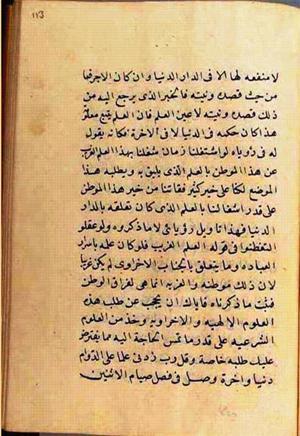 ١١٣
لا منفعه لها الا فى الدار الدنيا وان كان الاجر فيها
من حيث قصده ونيته فالخير الذى يرجع اليه من
ذلك قصده ونيته لا عين العلم فان العلم يتبع معلومه
هذا كان حكمه فى الدنيا لا فى الاخرة فكانه يقول
له فى رؤياه لو اشتغلنا زمان شغلنا بهذا العلم الغريب
عن هذا الموطن بالعلم الذى يليق به ويطلبه هذا
الموضع لكنا على خير كثير ففاتنا من خير هذا الموطن
على قدر اشتغالنا بالعلم الذى كان تعلقه بالدار
الدنيا فهذا تاويل رؤيا لا ما ذكروه ولو عقلو
لتفطنوا فى قوله العلم الغريب فلو كان علمه باسرار
العباده وما يتعلق بالجناب الاخراوى لم يكن غريبا
لان ذلك موطنه والغربه انما هى لفراق الوطن
فثبت ما ذكرناه فاياك ان تحجب عن طلب هذه
العلوم الالهيه والاخراويه وخذ من العلوم
الشرعيه على قدر ما تمس الحاجة اليه مما يفترض
عليك طلبه خاصة وقل رب زدنى علما على الدوام
دنيا واخرة وصل فى فصل صيام الاثنين